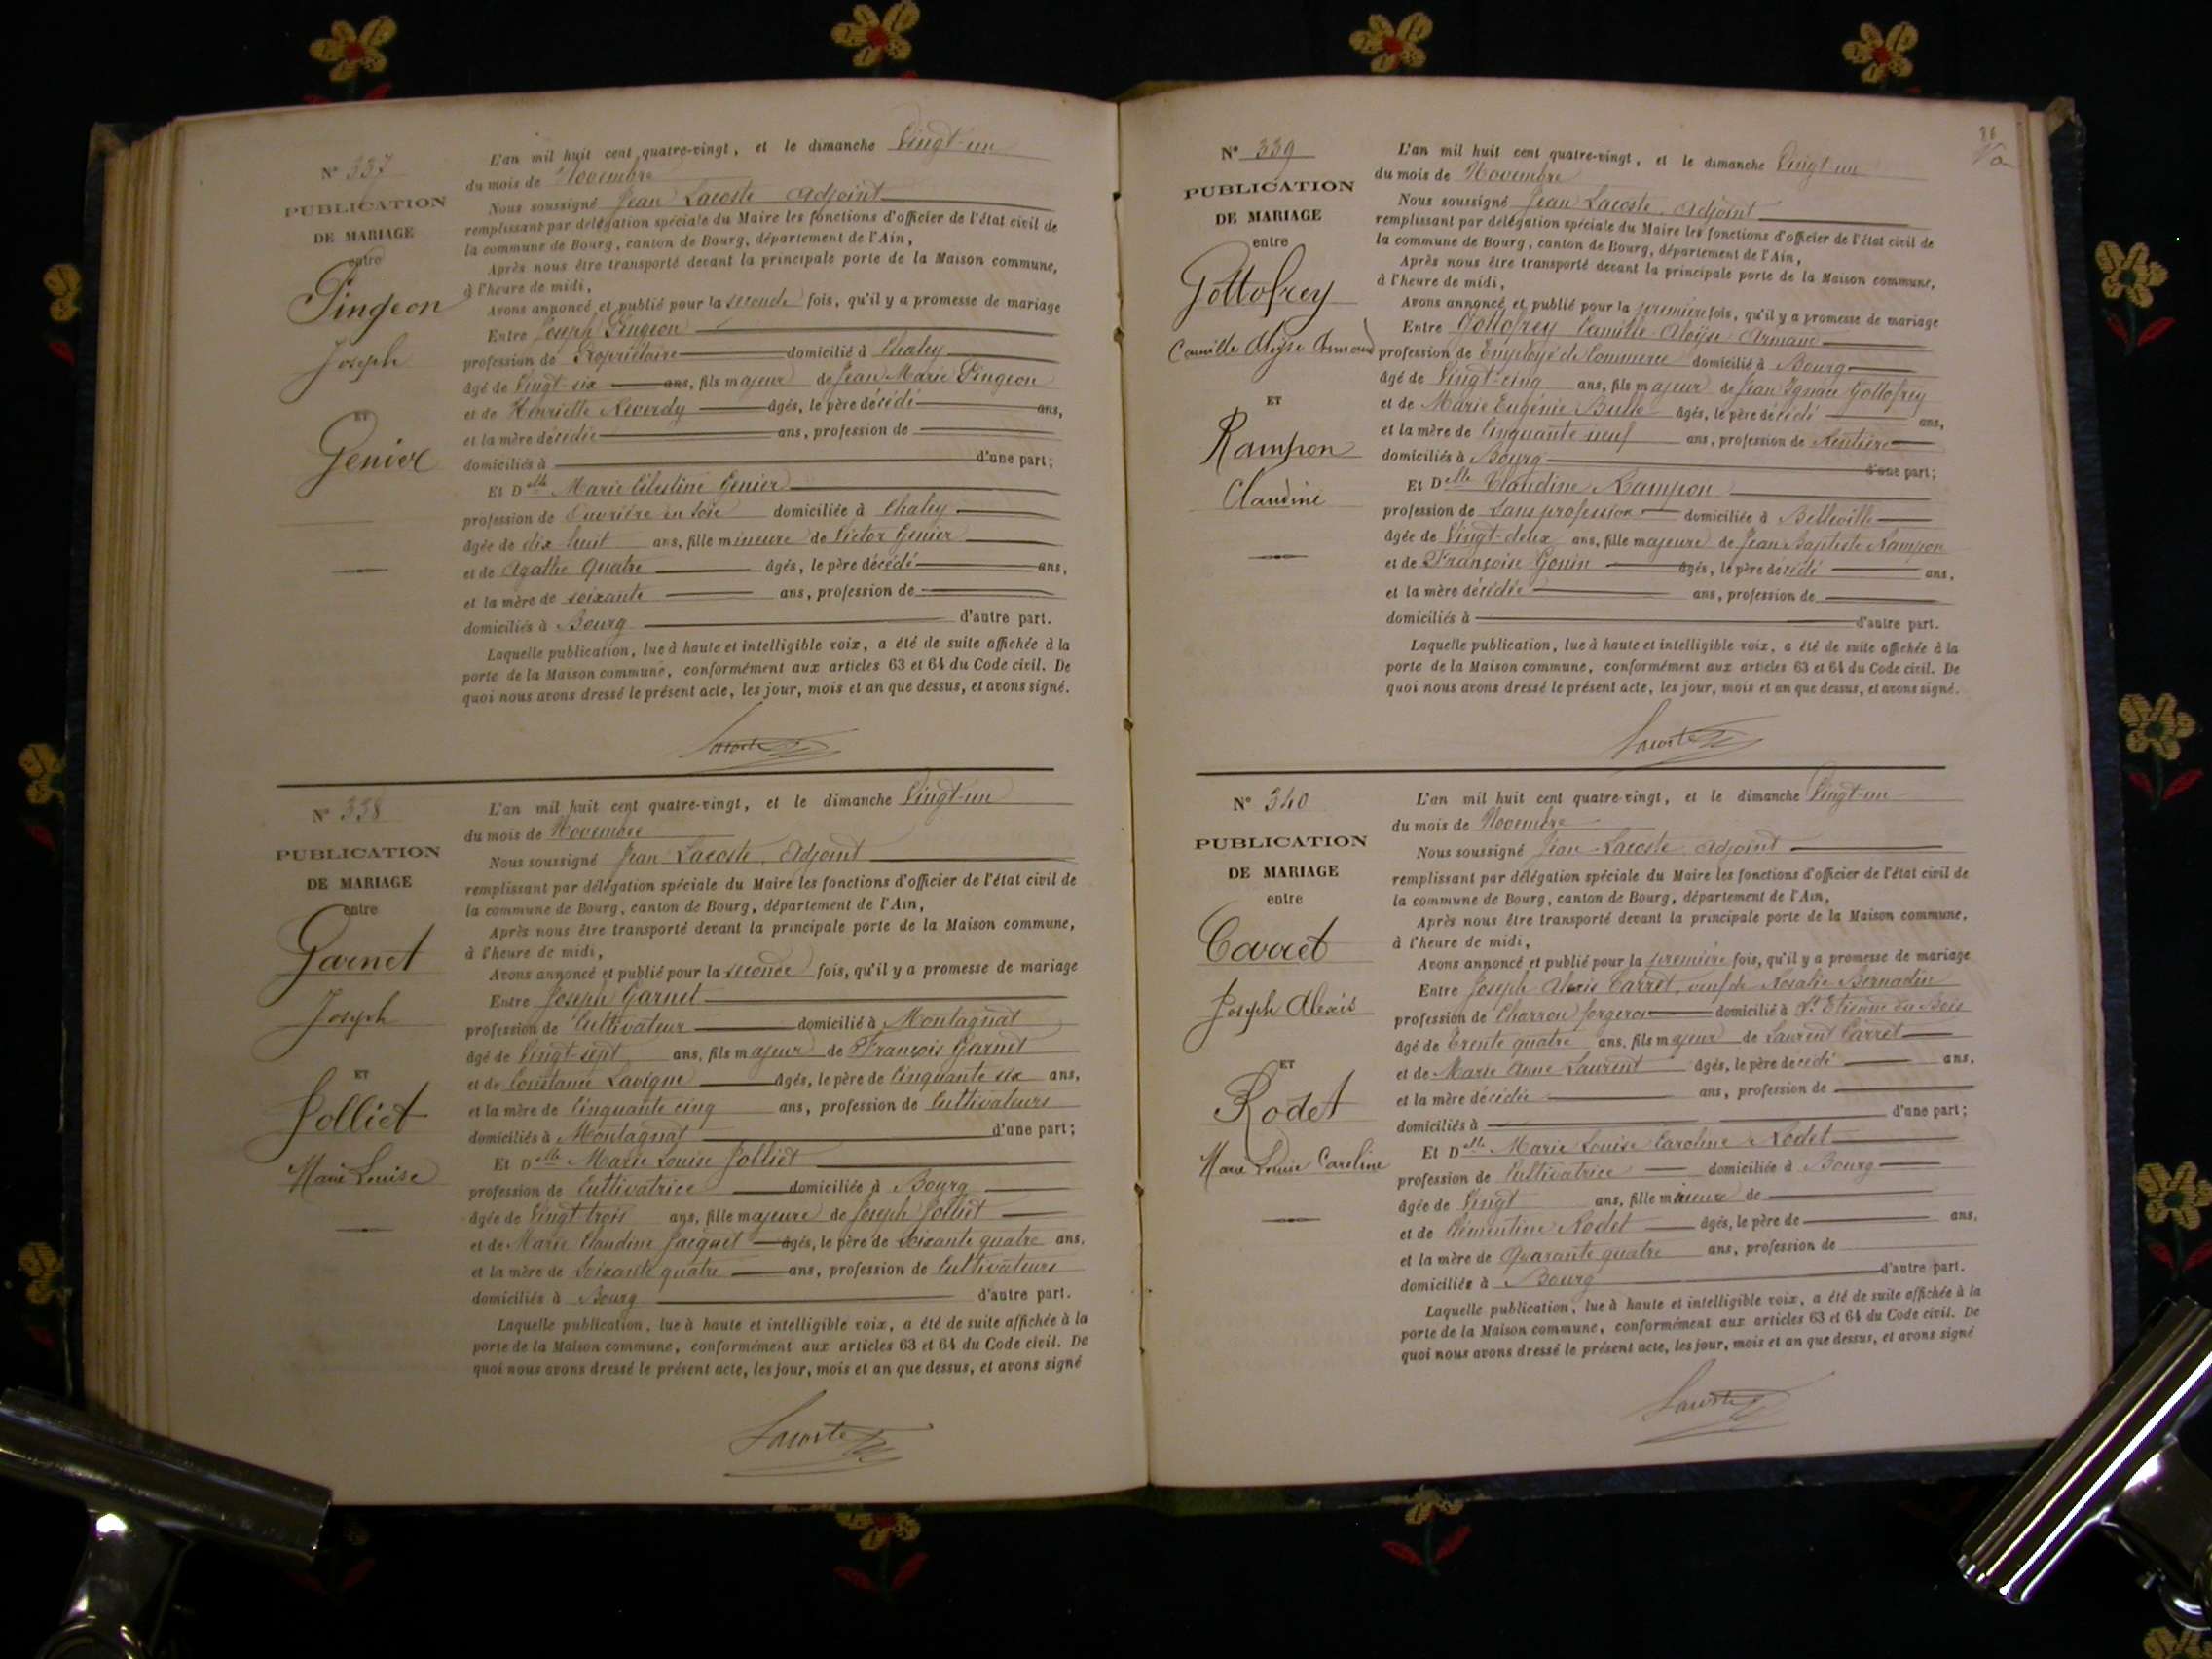 N° 337
PUBLICATION
DE MARIAGE
entre
Pingeon
Joseph
ET
Genier
L'an mil huit cent quatre-vingt, et le dimanche Vingt-un
du mois de Novembre
Nous soussigné Jean Lacoste Adjoint
remplissant par délégation spéciale du Maire les fonctions d'officier de l'état civil de
la commune de Bourg, canton de Bourg, département de l'Ain,
Après nous être transporté devant la principale porte de la Maison commune,
à l'heure de midi,
Avons annoncé et publié pour la seconde fois, qu'il y a promesse de mariage
Entre Joseph Pingeon
profession de Propriétaire domicilié à Chaley
âgé de Vingt-six ans, fils majeur de Jean Marie Pingeon
et de Henriette Reverdy âgés, le père décédé ans,
et la mère décédée ans, profession de
domiciliés à d'une part;
Et Delle Marie Célestine Genier
profession de Ouvrière en soie domiciliée à Chaley
âgée de dix huit ans, fille mineure de Victor Genier
et de Agathe Quatre âgés, le père décédé ans,
et la mère de soixante ans, profession de
domiciliés à Bourg d'autre part.
Laquelle publication, lue à haute et intelligible voix, a été de suite affichée à la
porte de la Maison commune, conformément aux articles 63 et 64 du Code civil. De
quoi nous avons dressé le présent acte, les jour, mois et an que dessus, et avons signé.
Lacoste
N° 338
PUBLICATION
DE MARIAGE
entre
Garnet
Joseph
ET
Jolliet
Marie Louise
L'an mil huit cent quatre-vingt, et le dimanche Vingt-un
du mois de Novembre
Nous soussigné Jean Lacoste, Adjoint
remplissant par délégation spéciale du Maire les fonctions d'officier de l'état civil de
la commune de Bourg, canton de Bourg, département de l'Ain,
Après nous être transporté devant la principale porte de la Maison commune,
à l'heure de midi,
Avons annoncé et publié pour la seconde fois, qu'il y a promesse de mariage
Entre Joseph Garnet
profession de Cultivateur domicilié à Montagnat
âgé de Vingt-sept ans, fils majeur de François Garnet
et de Constance Lavigne âgés, le père de Cinquante six ans,
et la mère de Cinquante cinq ans, profession de Cultivateurs
domiciliés à Montagnat d'une part;
Et Delle Marie Louise Jolliet
profession de Cultivatrice domiciliée à Bourg
âgée de Vingt-trois ans, fille majeure de Joseph Jolliet
et de Marie Claudine Jacquet âgés, le père de soixante quatre ans,
et la mère de soixante quatre ans, profession de Cultivateurs
domiciliés à Bourg d'autre part.
Laquelle publication, lue à haute et intelligible voix, a été de suite affichée à la
porte de la Maison commune, conformément aux articles 63 et 64 du Code civil. De
quoi nous avons dressé le présent acte, les jour, mois et an que dessus, et avons signé
Lacoste
86
N° 339
PUBLICATION
DE MARIAGE
entre
Gottofrey
Camille Aloÿse Armand
ET
Rampon
Claudine
L'an mil huit cent quatre-vingt, et le dimanche Vingt-un
du mois de Novembre
Nous soussigné Jean Lacoste, Adjoint
remplissant par délégation spéciale du Maire les fonctions d'officier de l'état civil de
la commune de Bourg, canton de Bourg, département de l'Ain,
Après nous être transporté devant la principale porte de la Maison commune,
à l'heure de midi,
Avons annoncé et publié pour la première fois, qu'il y a promesse de mariage
Entre Gottofrey Camille Aloÿse Armand
profession de Employé de Commerce domicilié à Bourg
âgé de Vingt-cinq ans, fils majeur de Jean Ignace Gottofrey
et de Marie Eugénie Bulle âgés, le père décédé ans,
et la mère de Cinquante neuf ans, profession de Rentière
domiciliés à Bourg d'une part;
Et Delle Claudine Rampon
profession de Sans profession domiciliée à Belleville
âgée de Vingt-deux ans, fille majeure de Jean Baptiste Rampon
et de Françoise Gonin âgés, le père décédé ans,
et la mère décédée ans, profession de
domiciliés à d'autre part.
Laquelle publication, lue à haute et intelligible voix, a été de suite affichée à la
porte de la Maison commune, conformément aux articles 63 et 64 du Code civil. De
quoi nous avons dressé le présent acte, les jour, mois et an que dessus, et avons signé.
Lacoste
N° 340
PUBLICATION
DE MARIAGE
entre
Carret
Joseph Alexis
ET
Rodet
Marie Louise Caroline
L'an mil huit cent quatre-vingt, et le dimanche Vingt-un
du mois de Novembre
Nous soussigné Jean Lacoste Adjoint
remplissant par délégation spéciale du Maire les fonctions d'officier de l'état civil de
la commune de Bourg, canton de Bourg, département de l'Ain,
Après nous être transporté devant la principale porte de la Maison commune,
à l'heure de midi,
Avons annoncé et publié pour la première fois, qu'il y a promesse de mariage
Entre Joseph Alexis Carret, veuf de Rosalie Bernardin
profession de Charron forgeron domicilié à St Etienne du Bois
âgé de Trente quatre ans, fils majeur de Laurent Carret
et de Marie Anne Laurent âgés, le père décédé ans,
et la mère décédée ans, profession de
domiciliés à d'une part;
Et Delle Marie Louise Caroline Rodet
profession de Cultivatrice domiciliée à Bourg
âgée de Vingt ans, fille mineure de
et de Clémentine Rodet âgés, le père de ans,
et la mère de Quarante quatre ans, profession de
domiciliés à Bourg d'autre part.
Laquelle publication, lue à haute et intelligible voix, a été de suite affichée à la
porte de la Maison commune, conformément aux articles 63 et 64 du Code civil. De
quoi nous avons dressé le présent acte, les jour, mois et an que dessus, et avons signé
Lacoste